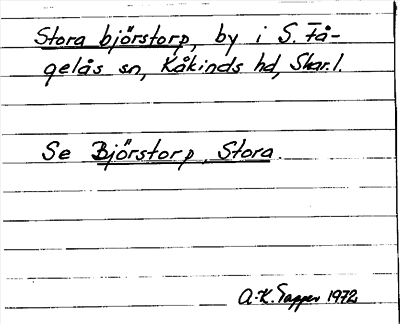 Stora björstorp, by i S. Få-
gelås sn, Kåkinds hd, Skar.l.
Se Björstorp, Stora.
A-K. Tapper 1972